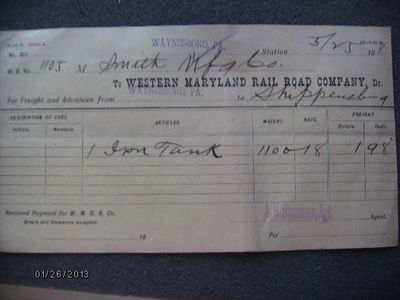 WAYNESBORO, PA. Station 5/25 188
W. B. No. 1105 M Smith Mfg Co.
To WESTERN MARYLAND RAIL ROAD COMPANY, Dr.
For Freight and Advances from WAYNESBORO, PA. to Shippensburg
DESCRIPTION OF CARS. ARTICLES WEIGHT RATE. FREIGHT
Initials. Numbers. Dollars. Cents.
1 Iron Tank 1100 18 1 98
Received Payment for W. M. R. R. Co.
Errors and Omissions excepted.
Agt. Agent.
18 Per
01/26/2013